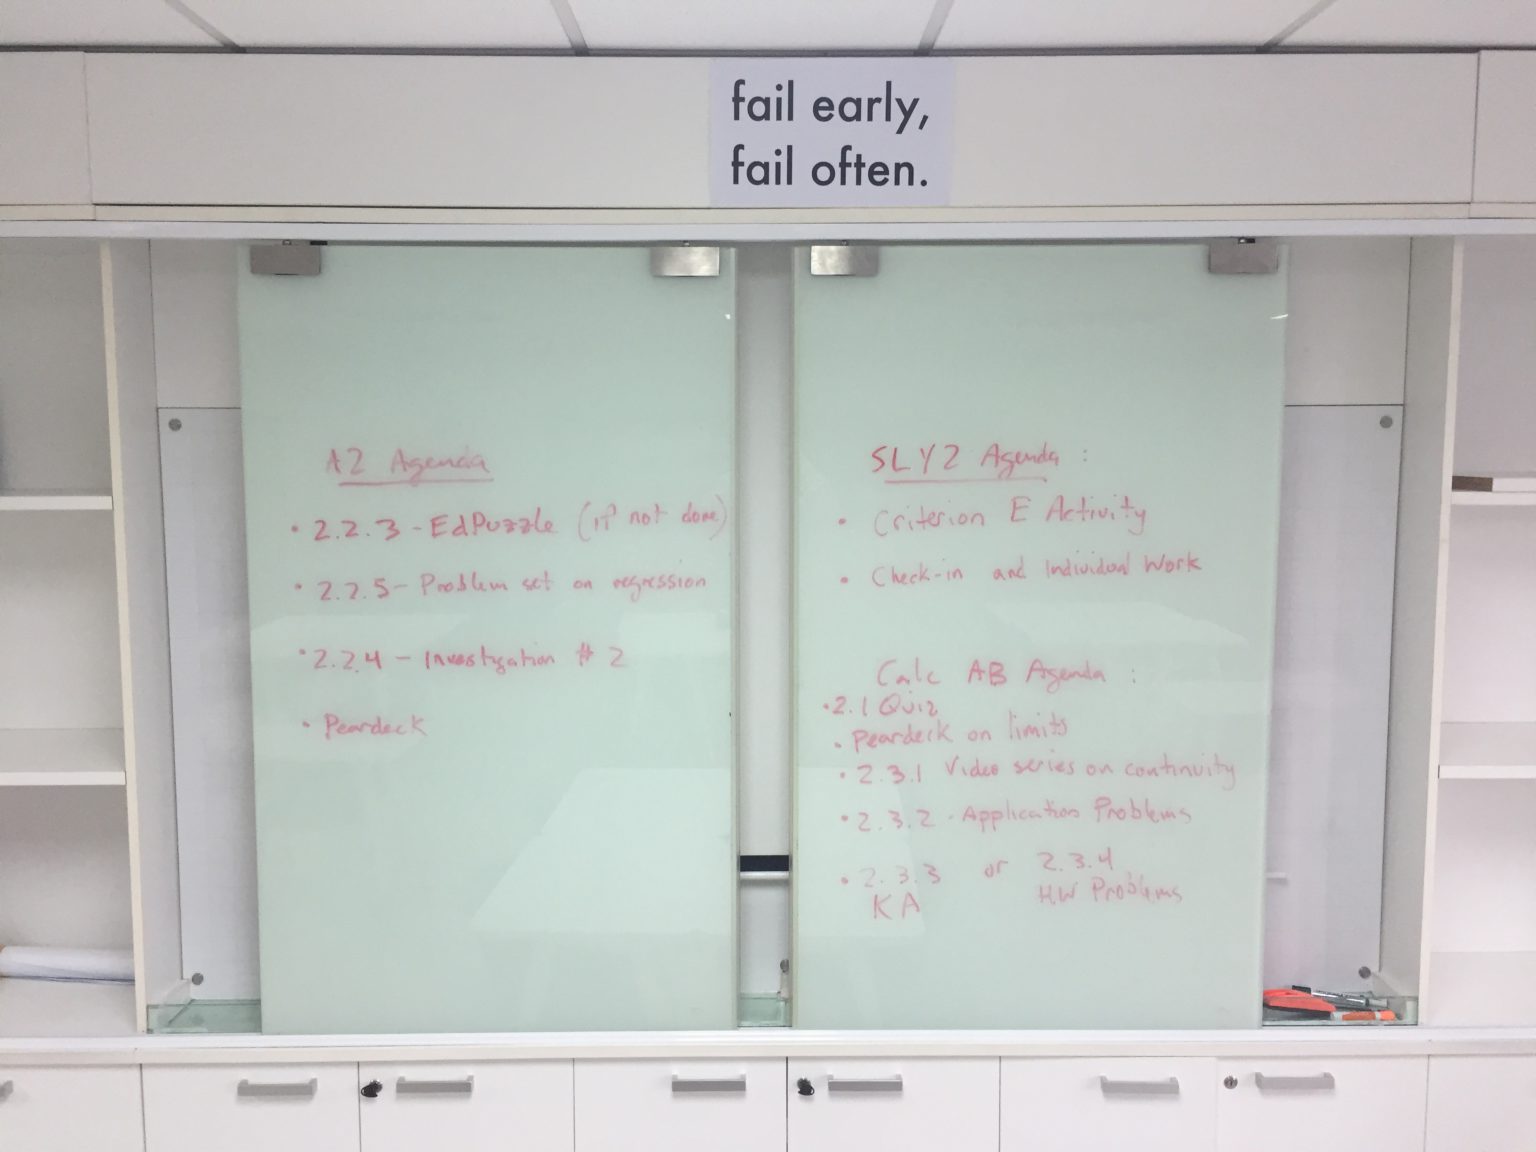 fail early,
fail often.
A2 Agenda
• 2.2.3 - EdPuzzle (if not done)
• 2.2.5 - Problem set on regression
• 2.2.4 - Investigation # 2
• Peardeck
SLY2 Agenda :
• Criterion E Activity
• Check-in and Individual Work
Calc AB Agenda :
• 2.1 Quiz
• Peardeck on limits
• 2.3.1 Video series on continuity
• 2.3.2 - Application Problems
• 2.3.3 or 2.3.4
KA HW Problems